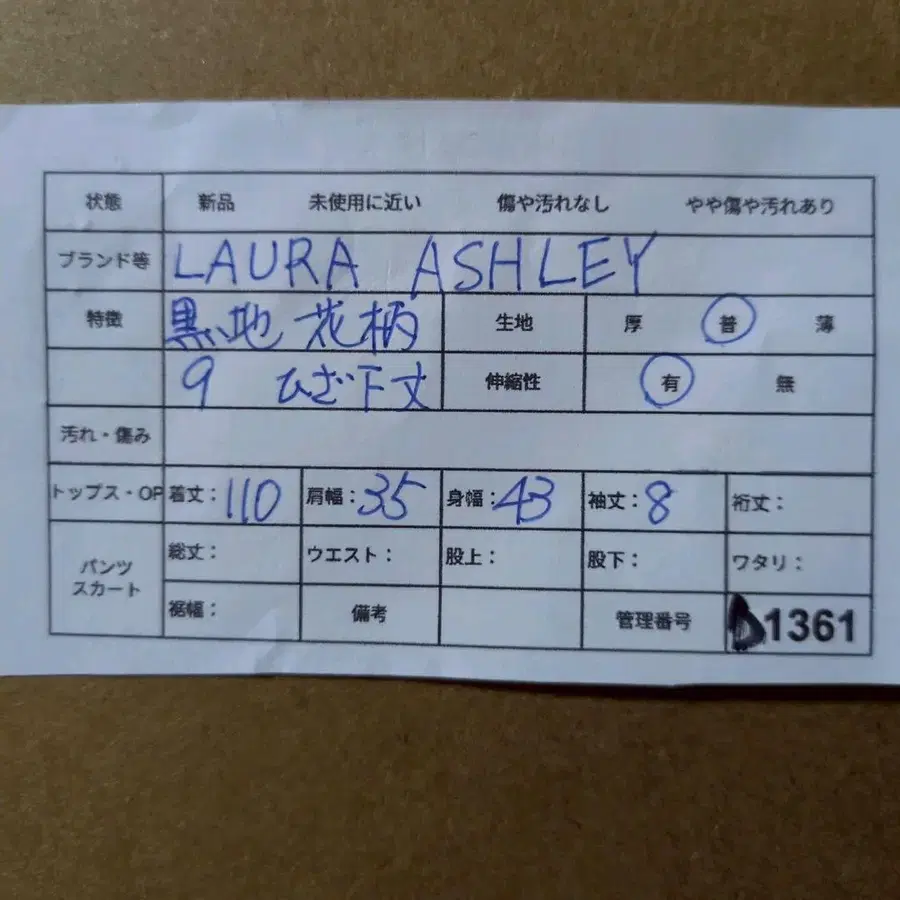 状態 新品 未使用に近い 傷や汚れなし やや傷や汚れあり
ブランド等 LAURA ASHLEY
特徴 黒地 花柄 生地 厚 普 薄
9 ひざ下丈 伸縮性 有 無
汚れ・傷み
トップス・OP 着丈:110 肩幅:35 身幅:43 袖丈:8 裄丈:
パンツ スカート 総丈: ウエスト: 股上: 股下: ワタリ:
裾幅: 備考 管理番号 D1361